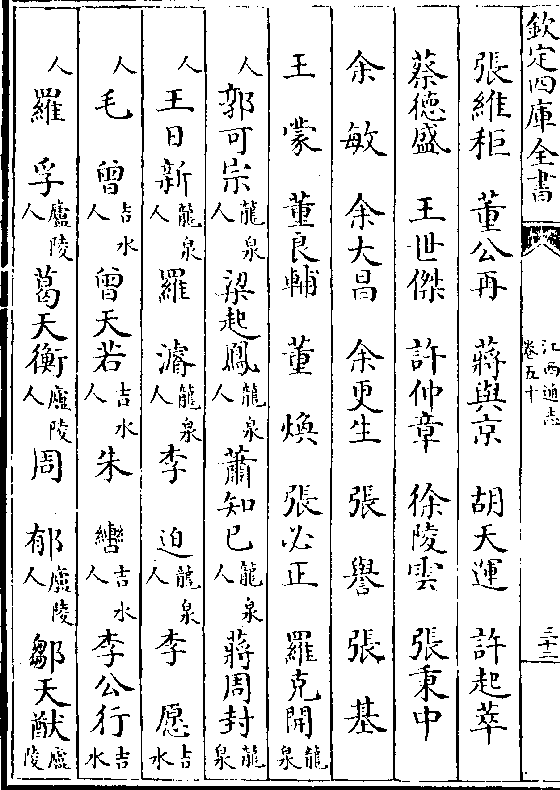 欽定四庫全書
江西通志
卷五十
三十二
張維秬 董公再 蔣與京 胡天運 許起莘
蔡德盛 王世傑 許仲章 徐陵雲 張秉中
余敏 余大昌 余更生 張譽 張基
王蒙 董良輔 董煥 張必正 羅克開龍泉
人 郭可宗龍泉人 梁起鳳龍泉人 蕭知已龍泉人 蔣周封龍泉
人 王日新龍泉人 羅濬龍泉人 李迫龍泉人 李愿吉水
人 毛曾吉水人 曾天若吉水人 朱轡吉水人 李公行吉水
人 羅孚廬陵人 葛天衡廬陵人 周郁廬陵人 鄒天猷廬陵